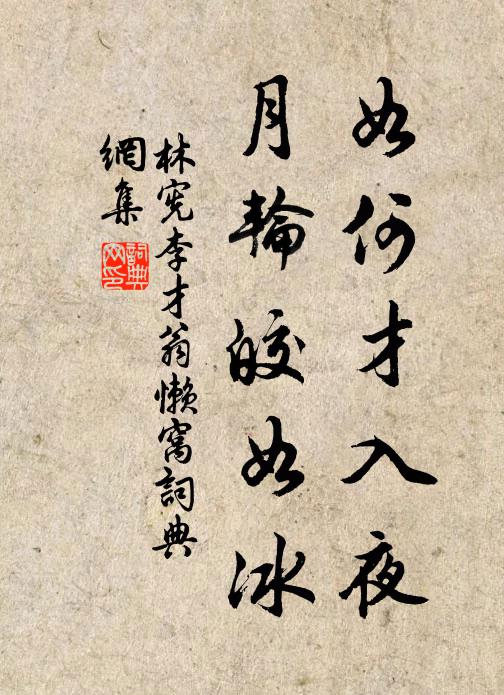 如何才入夜
月輪皎如冰
林宪李才翁懒窝詞典
網集
詞典
网印